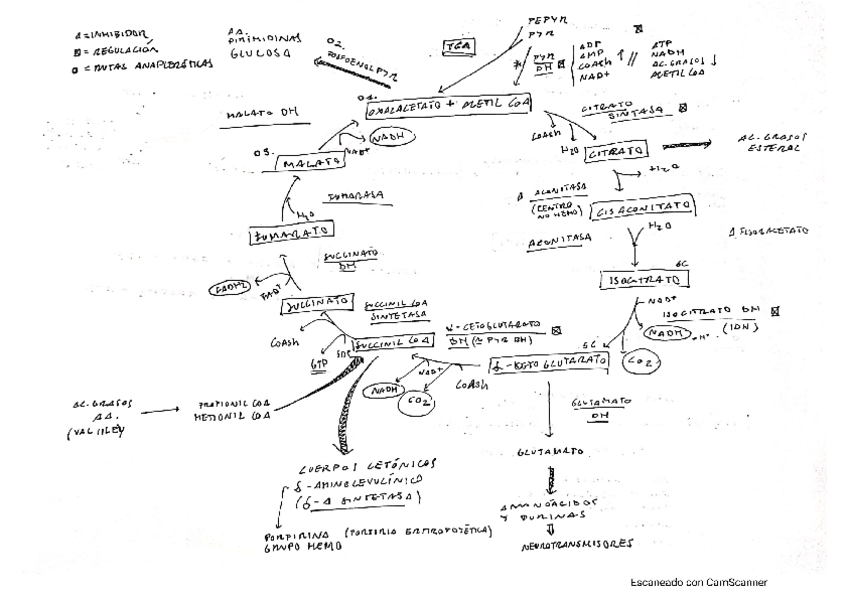 Δ = INHIBIDOR
⊠ = REGULACIÓN
O = RUTAS ANAPLERÓTICAS
AA
PIRIMIDINAS
GLUCOSA
O2.
FOSFOENOLPYR
TCA
PEPYR
PYR
* PYR DH ⊠
ADP
AMP
COASH ↑
NAD+
//
⊠
ATP
NADH
AC. GRASOS ↓
ACETIL COA
OXALACETATO + ACETIL COA
MALATO DH
NADH
NAD+
O3.
MALATO
CITRATO
SINTASA ⊠
COASH
H2O
CITRATO
AC. GRASOS
ESTERAL
H2O
ACONITASA
(CENTRO
NO HEMO)
CISACONITATO
FUMARASA
H2O
FUMARATO
ACONITASA
H2O
Δ FLUORACETATO
6C
ISOCITRATO
SUCCINATO
DH
FADH2
FAD+
SUCCINATO
SUCCINIL COA
SINTETASA
NAD+
ISOCITRATO DH ⊠
(IDH)
NADH
H+
CO2
COASH
GTP
SUCCINIL COA
α-CETOGLUTARATO
DH (≈ PYR DH) ⊠
5C
NAD+
NADH
CO2
COASH
AC. GRASOS
AA.
(VAL, ILE)
PROPIONIL COA
METIONIL COA
GLUTAMATO
DH
GLUTAMATO
CUERPOS CETÓNICOS
δ-AMINOLEVULÍNICO
(δ-A SINTETASA)
AMINOÁCIDOS
Y PURINAS
PORFIRINA (PORFIRIA ERITROPOYÉTICA)
GRUPO HEMO
NEUROTRANSMISORES
Escaneado con CamScanner